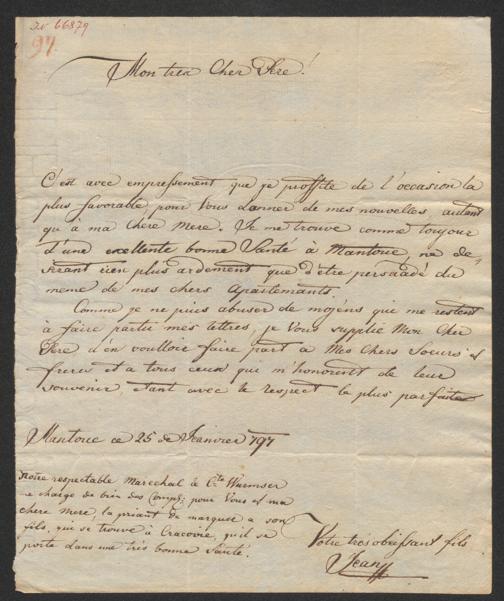 Jv 66879
97.
Mon tres Cher Pere!
C'est avec empressement que je proffite de l'occasion la
plus favorable pour Vous danner de mes nouvelles, autant
qu'a ma chere Mere. Je me trouve comme toujour
d'une excellente bonne Santé à Mantoue, ne de-
sirant rien plus ardement que d'être persuadé du
meme de mes chers Apartemants.
Comme je ne puis abuser de moÿens que me restent
à faire partir mes lettres, je Vous supplie Mon Cher
Pere d'en voulloir faire part a Mes Chers Soeurs et
freres et a tous ceux qui m'honorent de leur
souvenir, etant avec le respect le plus parfait
Mantoue ce 25 de Jeanvier 797
Notre respectable Marechal le Cte Wurmser
me charge de bien des Compl: pour Vous et ma
chere Mere, la priant de marquer a son
fils, qui se trouve à Cracovie, qu'il se
porte dans une très bonne Santé.
Votre tres obeissant fils
Jean